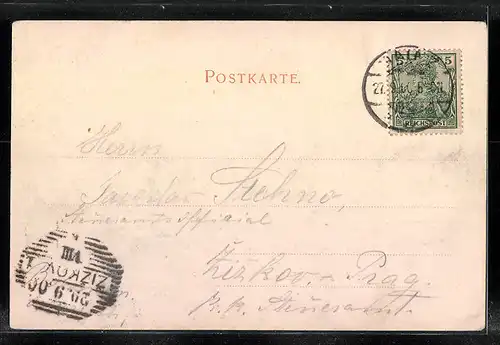 POSTKARTE.
5
REICHSPOST
Herrn
Jaroslav Stehno,
Steueramts Official
Žižkov-Prag.
k.k. Steueramt.
ŽIŽKOV 1
29.9.00
VIII